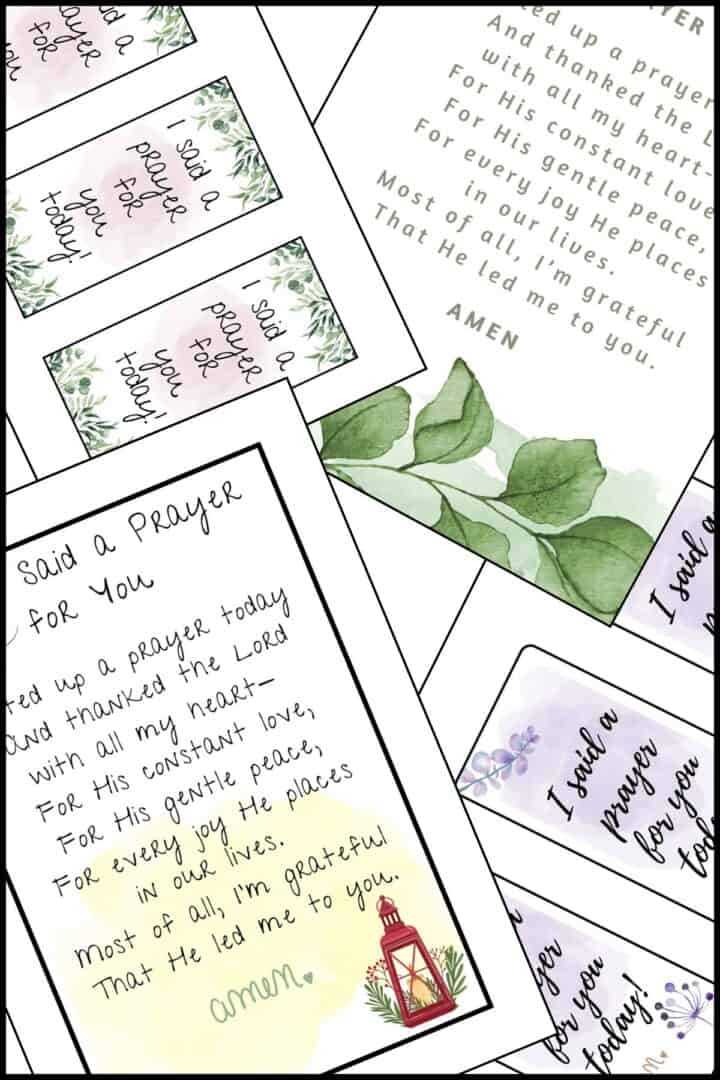 said a
for
you
I said a
prayer
for
you
today!
I said a
prayer
for
you
today!
AYER
ted up a prayer
And thanked the L
with all my heart-
For His constant love
For His gentle peace,
For every joy He places
in our lives.
Most of all, I'm grateful
That He led me to you.
AMEN
Said a Prayer
for You
ted up a prayer today
and thanked the Lord
with all my heart—
For His constant love,
For His gentle peace,
For every joy He places
in our lives.
Most of all, I'm grateful
That He led me to you.
amen
I said a
I said a
prayer
for you
today
yer
for you
today!